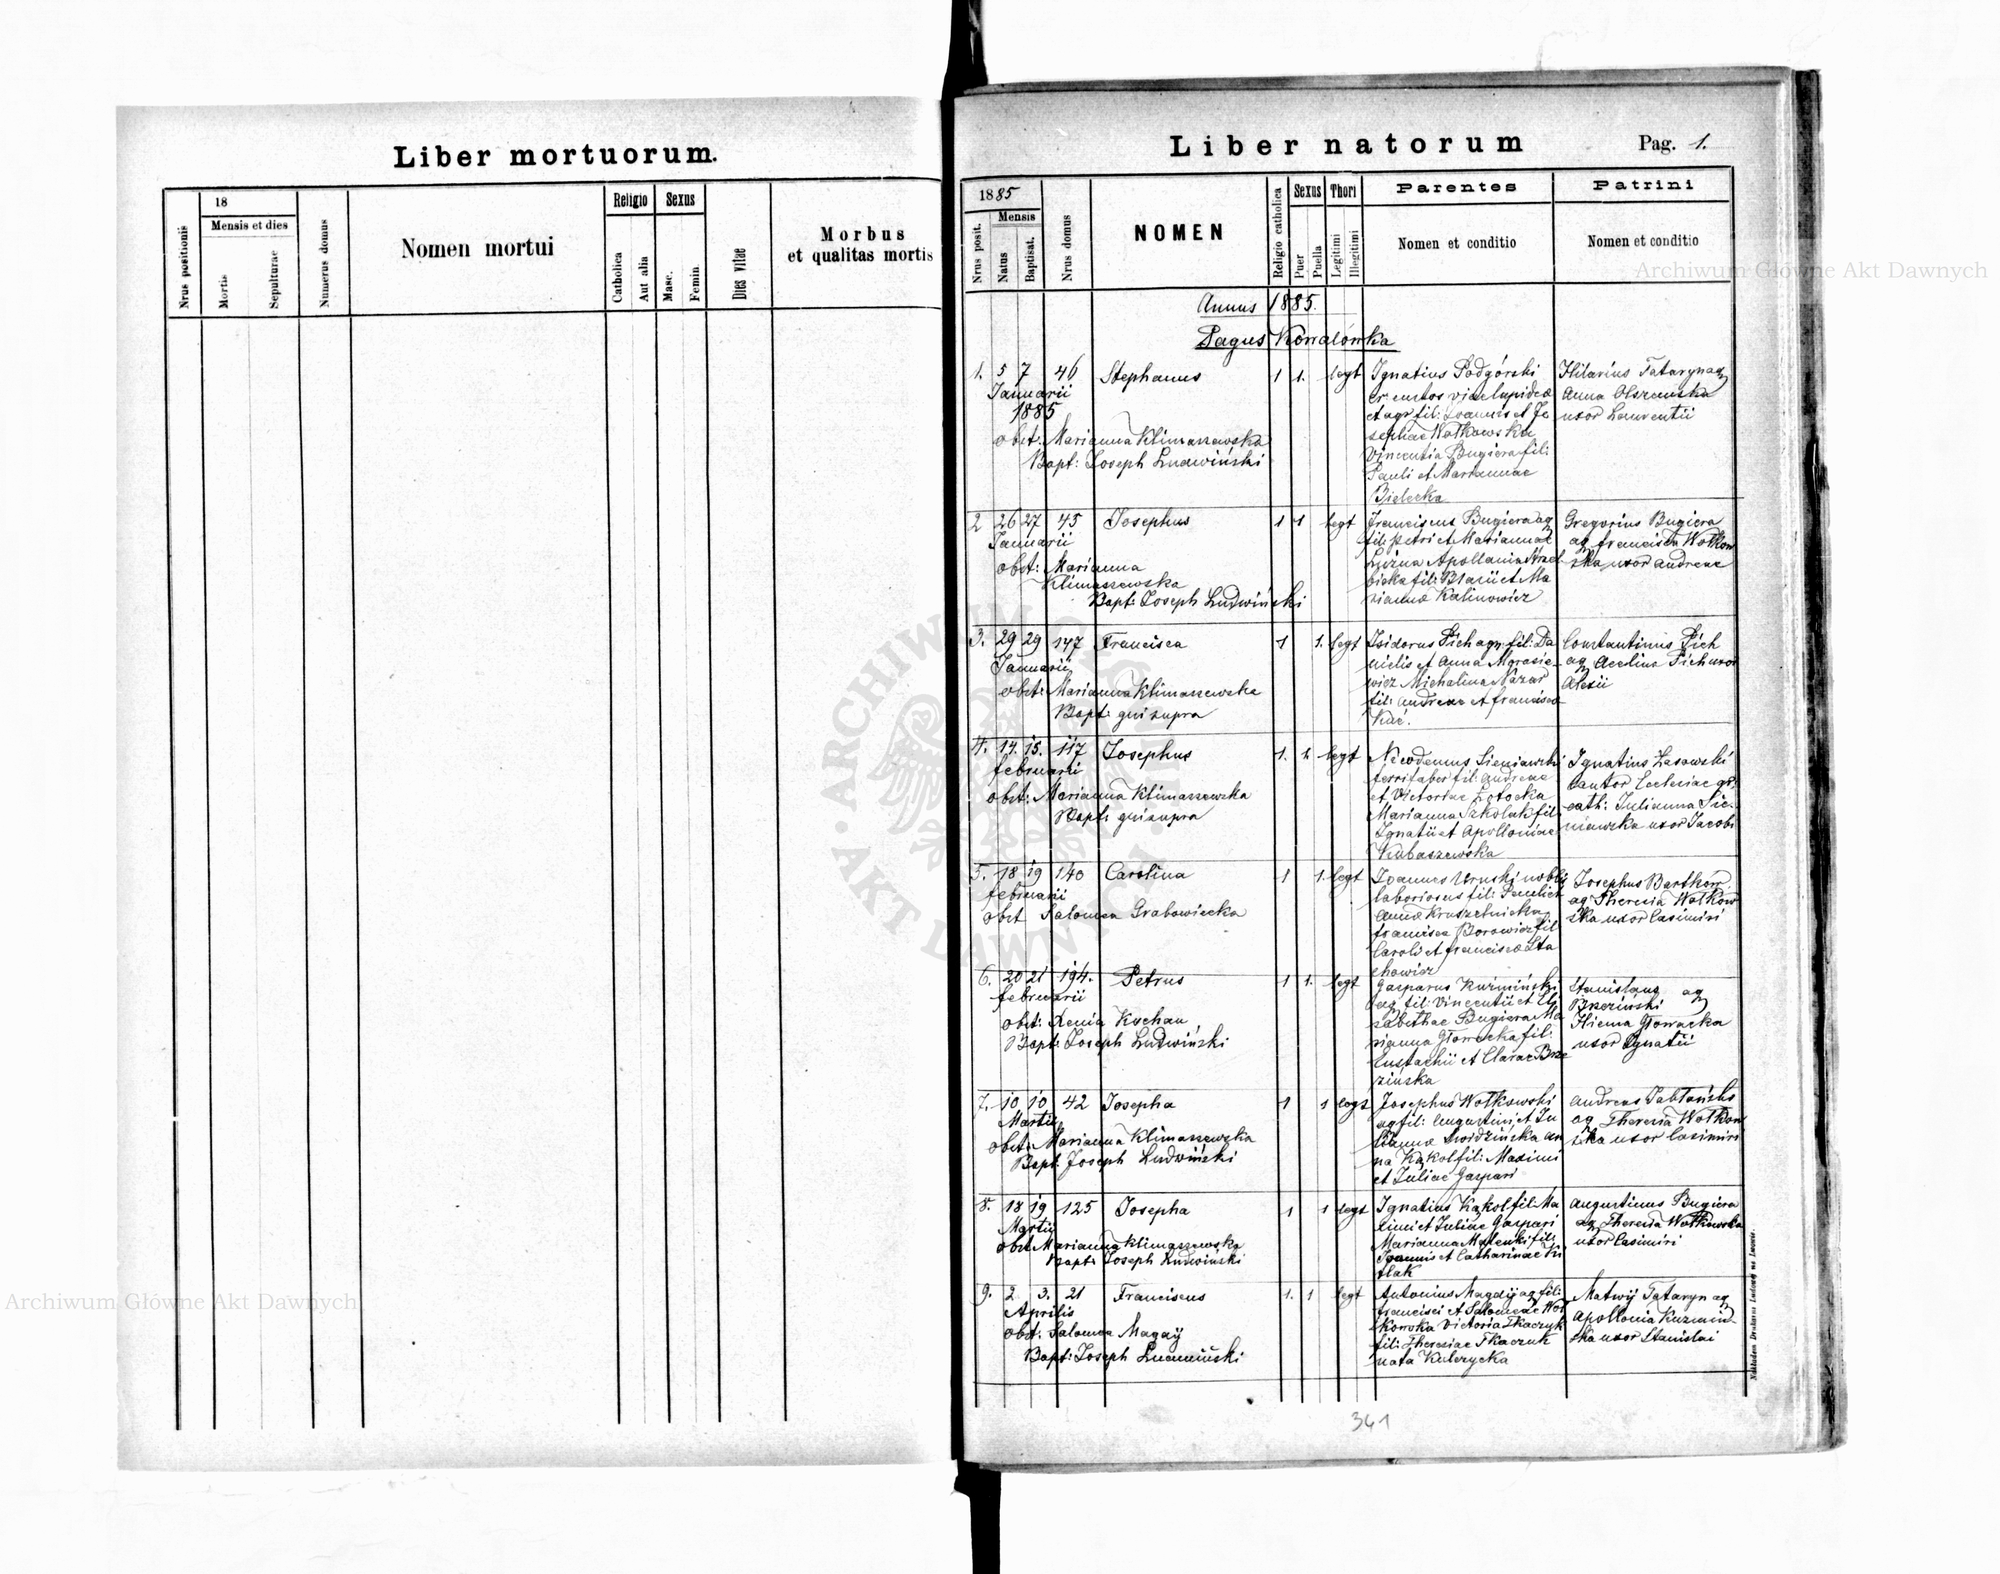 Liber mortuorum.
18
Religio
Sexus
Mensis et dies
Nrus positionis
Mortis
Sepulturae
Numerus domus
Nomen mortui
Catholica
Aut alia
Masc.
Femin.
Dies vitae
Morbus
et qualitas mortis
Liber natorum
Pag. 1.
1885
Mensis
Nrus posit.
Natus
Baptisat.
Nrus domus
NOMEN
Religio catholica
Sexus
Puer
Puella
Thori
Legitimi
Illegitimi
Parentes
Nomen et conditio
Patrini
Nomen et conditio
Annus 1885.
Pagus Kowalówka
1. 5 7 46 Stephanus 1 1. legt
Januarii
1885
obst: Marianna Klimaszewska
Bapt: Joseph Ludwiński
Ignatius Podgórski
et agr fil: Joannis et Jo
sephae Wołkowska
Vincentia Bugiera fil:
Pauli et Mariannae
Bielecka
Hilarius Tataryn ag
Anna Olszewska
uxor Laurentii
2 26 27 45 Josephus 1 1 legt
Januarii
obst: Marianna
Klimaszewska
Bapt: Joseph Ludwiński
Franciscus Bugiera ag
fil: Petri et Marianna
bicka fil: Blasii et Ma
rianna Kalinowicz
Gregorius Bugiera
ag Francisca Wołkow
ska uxor Andreae
3. 29 29 147 Francisca 1 1. legt
Januarii
obst: Marianna Klimaszewska
Bapt: qui supra
Isidorus Pich agr: fil: Da
nielis et Anna
wicz Michalina Nazar
fil: Andreae et Francisca
Kuć.
Constantinus Pich
ag Acelina Pich uxor
Alexii
4. 14. 15. 117 Josephus 1. 1. legt
februarii
obst: Marianna Klimaszewska
Bapt: qui supra
Nicodemus Sieniawski
ferrifaber fil: Andreae
et Victoriae Łotocka
Marianna Szkolak fil:
Ignatii et Apolloniae
Kubaszewska
Ignatius Lasowski
Cantor Ecclesiae gr.
cath: Julianna Sie-
niawska uxor Jacobi
5. 18 19 140 Carolina 1 1. legt
februarii
obst Salomea Grabowiecka
Joannes Uruski nobilis
laboriosus fil:
Anna Kruszelnicka
Francisca Borowicz fil:
Caroli et Francisca Sta
chowicz
Josephus Bartków
ag Theresia Wołkow
ska uxor Casimiri
6. 20 21 194. Petrus 1 1. legt
februarii
obst: Xenia Kuchan
Bapt: Joseph Ludwiński
Gasparus Kuźmiński
ag fil: Vincentii et Eli
sabethae Bugiera Ma
rianna Głowacka fil:
Eustachii et Clarae Brze
zińska
Stanislaus ag
Brzeziński
Głowacka
uxor Ignatii
7. 10 10 42 Josepha 1 1 legt
Martii
obst: Marianna Klimaszewska
Bapt: Joseph Ludwiński
Josephus Wołkowski
ag fil: Augustini et Ju
lianna an
na Kąkol fil: Maximi
et Juliae Gaspari
Andreas Jabłoński
ag Theresia Wołkow
ska uxor Casimiri
8. 18 19 125 Josepha 1 1 legt
Martii
obst Marianna Klimaszewska
Bapt: Joseph Ludwiński
Ignatius Kąkol fil: Ma
ximi et Juliae Gaspari
Marianna Malenki fil:
Joannis et Catharinae Ki
tlak
Augustinus Bugiera
ag Theresia Wołkowska
uxor Casimiri
9. 2 3. 21 Franciscus 1. 1 legt
Aprilis
obst: Salomea Magdij
Bapt: Joseph Ludwiński
Antonius Magdij ag fil:
Francisci et Salomeae Woł
kowska Victoria Tkaczuk
fil: Theresiae Tkaczuk
nata Kulczycka
Matwij Tataryn ag
Apollonia Kuzmin-
ska uxor Stanislai
Nakładem Drukarni Ludowej we Lwowie.
341
Archiwum Główne Akt Dawnych
Archiwum Główne Akt Dawnych
ARCHIWUM GŁÓWNE
AKT DAWNYCH